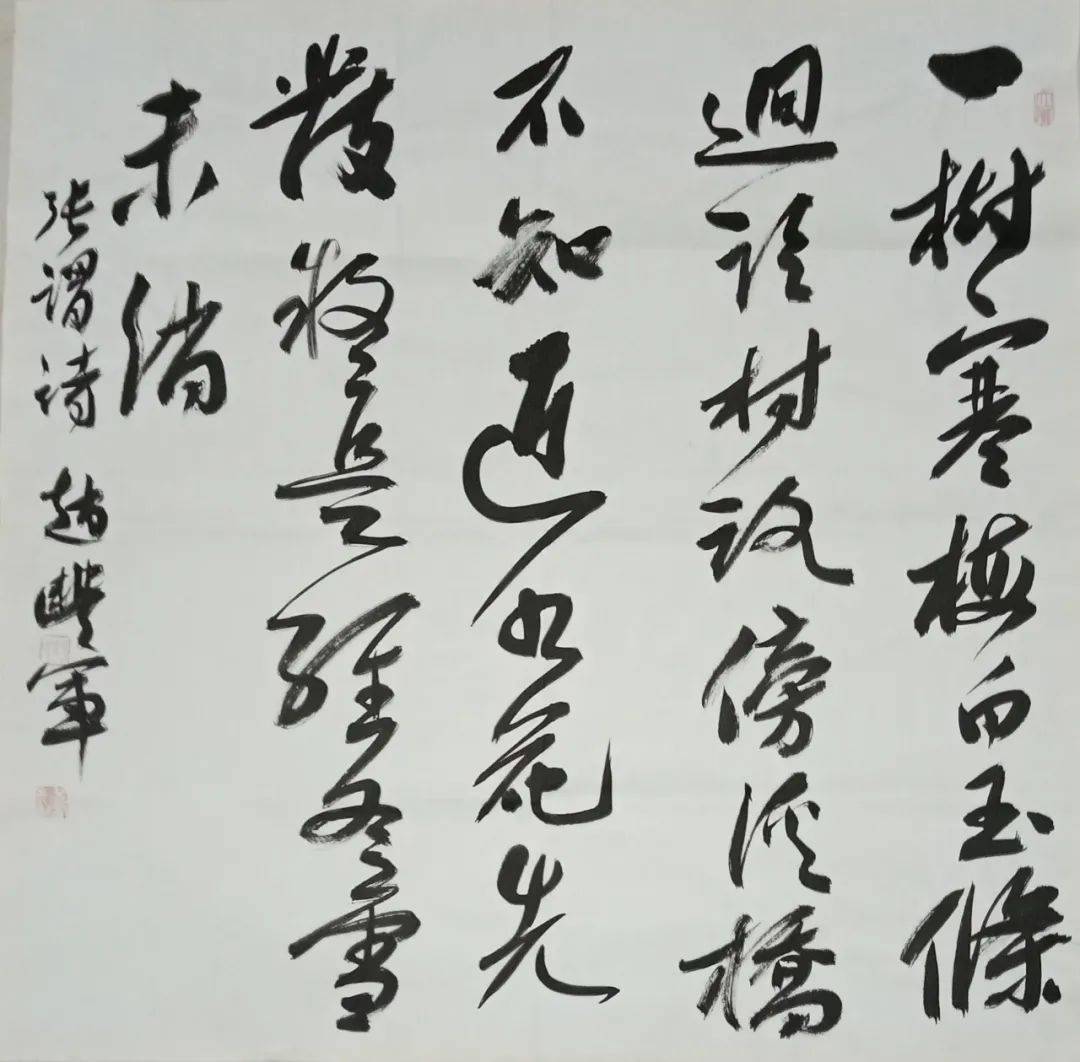 一樹寒梅白玉條
迴臨村路傍溪橋
不知近水花先
發疑是經冬雪
未銷
張謂詩 趙豐軍